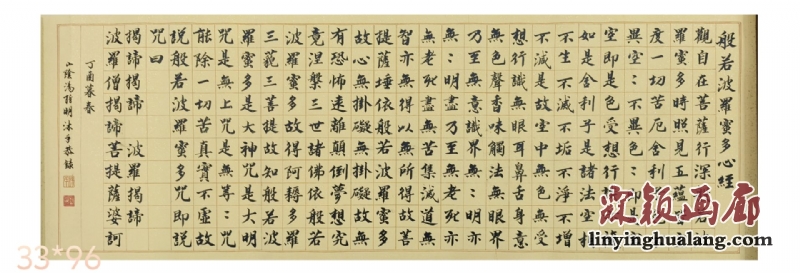 般若波羅蜜多心經
觀自在菩薩行深
羅蜜多時照見五蘊
度一切苦厄舍利
異空〻不異色〻
空即是色受想行
如是舍利子是諸法空
不生不滅不垢不淨不增
不減是故空中無色無受
想行識無眼耳鼻舌身意
無色聲香味觸法無眼界
乃至無意識界無〻明亦
無〻明盡乃至無老死亦
無老死盡無苦集滅道無
智亦無得以無所得故菩
提薩埵依般若波羅蜜多
故心無掛礙無掛礙故無
有恐怖遠離顛倒夢想究
竟涅槃三世諸佛依般若
波羅蜜多故得阿耨多羅
三藐三菩提故知般若波
羅蜜多是大神咒是大明
咒是無上咒是無等〻咒
能除一切苦真實不虛故
說般若波羅蜜多咒即說
咒曰
揭諦揭諦 波羅揭諦
波羅僧揭諦菩提薩婆訶
丁酉暮春
山陰湯雅明沐手敬録
霖颖画廊
linyinghualang.com
33*96